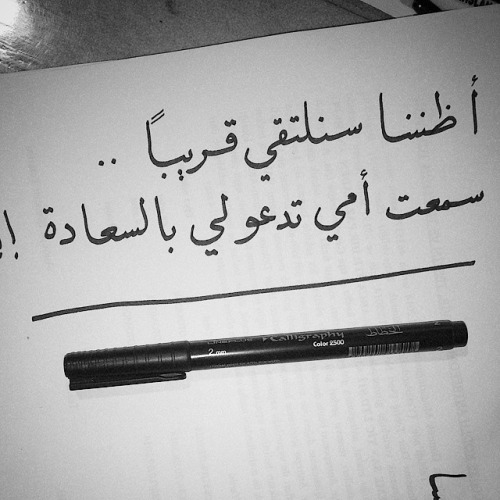 أظننا سنلتقي قريباً ..
سمعت أمي تدعو لي بالسعادة !
Calligraphy الخطاط
2 mm
Color 2500